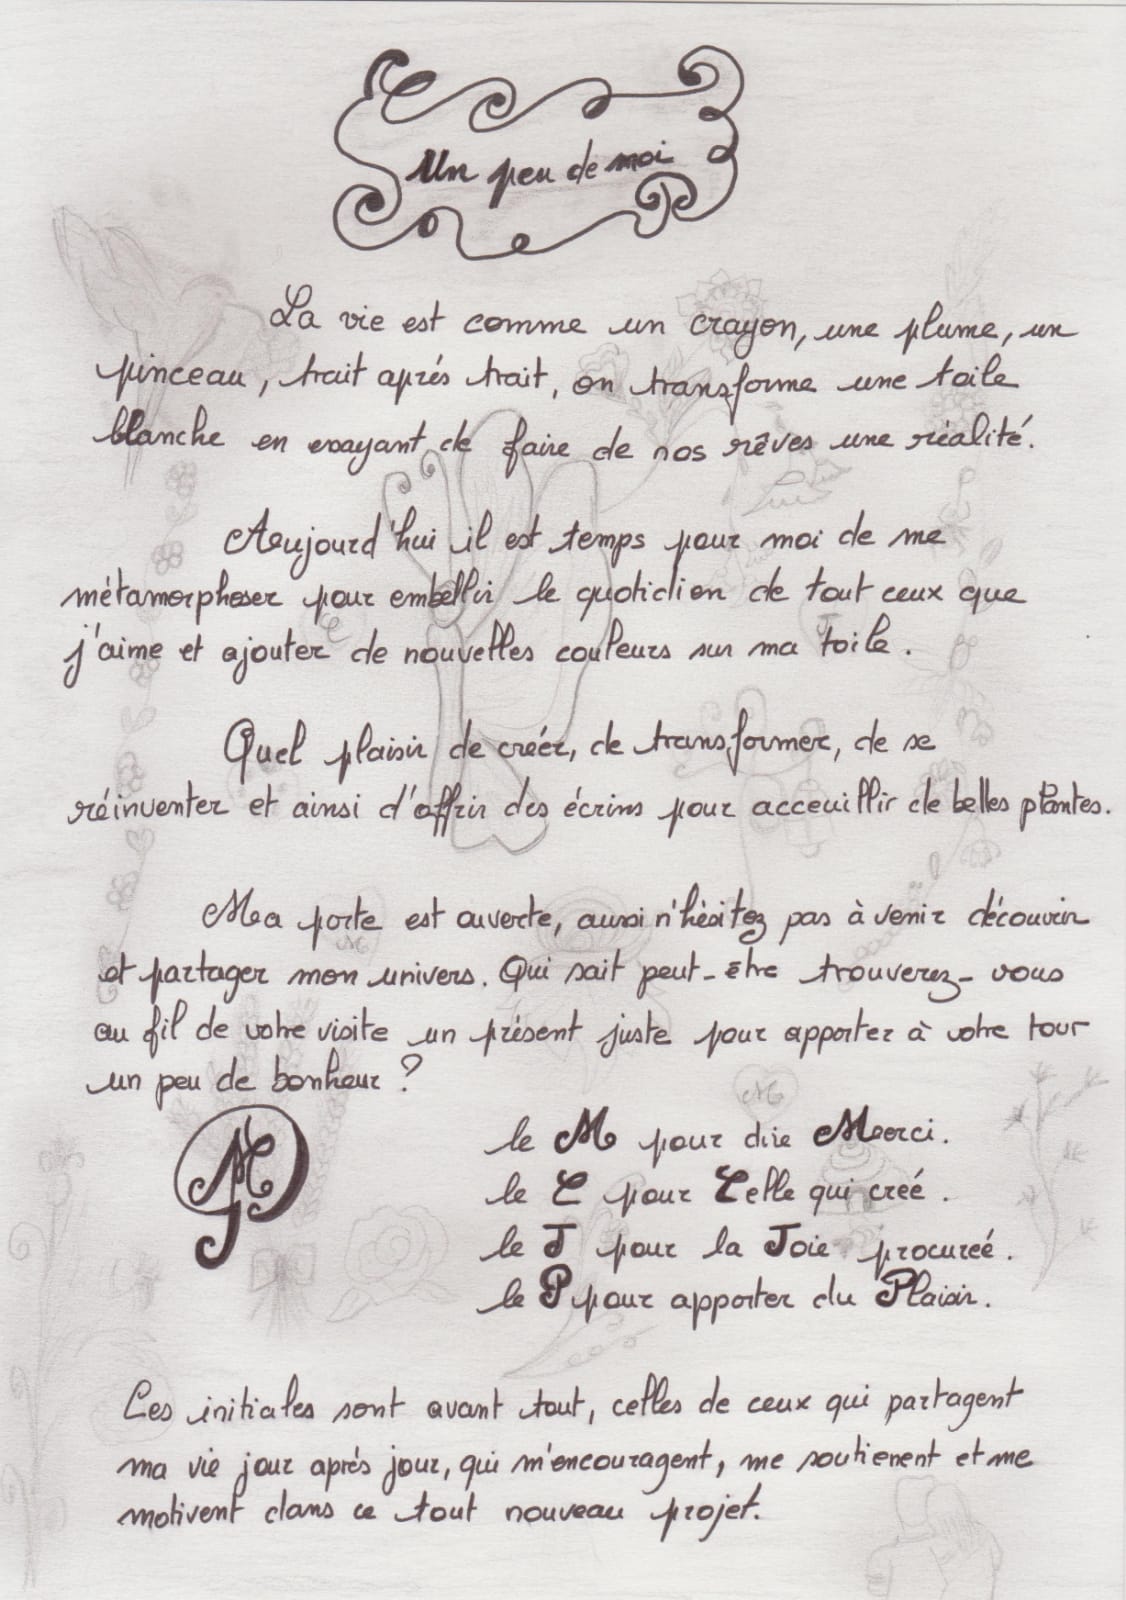 Un peu de moi
La vie est comme un crayon, une plume, un
pinceau, trait aprés trait, on transforme une toile
blanche en essayant de faire de nos rêves une réalité.
Aujourd'hui il est temps pour moi de me
métamorphoser pour embellir le quotidien de tout ceux que
j'aime et ajouter de nouvelles couleurs sur ma toile.
Quel plaisir de créer, de transformer, de se
réinventer et ainsi d'offrir des écrins pour acceuillir de belles plantes.
Ma porte est ouverte, aussi n'hésitez pas à venir découvrir
et partager mon univers. Qui sait peut-être trouverez-vous
au fil de votre visite un présent juste pour apporter à votre tour
un peu de bonheur ?
MCJP
le M pour dire Merci.
le C pour Celle qui créé.
le J pour la Joie procureé.
le P pour apporter du Plaisir.
Ces initiales sont avant tout, celles de ceux qui partagent
ma vie jour aprés jour, qui m'encouragent, me soutienent et me
motivent dans ce tout nouveau projet.